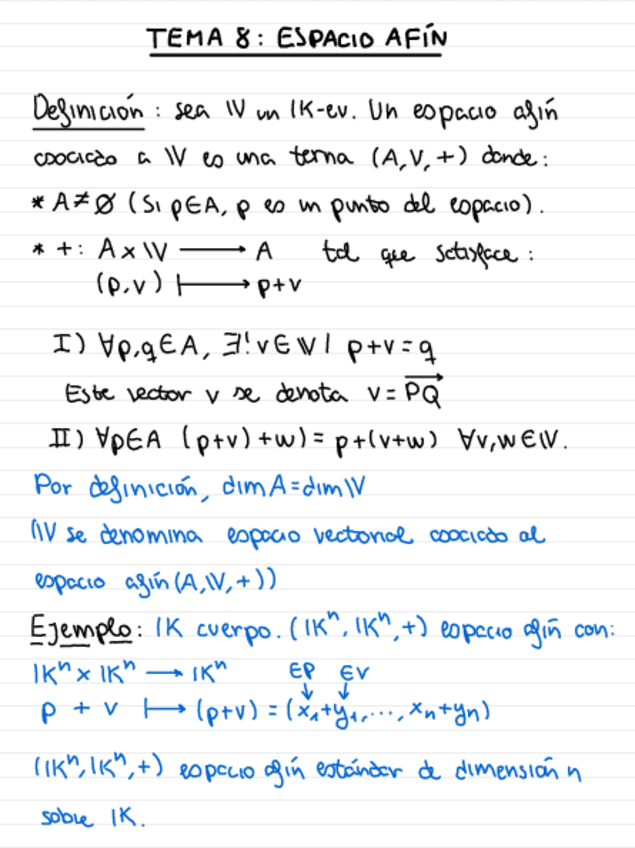 TEMA 8: ESPACIO AFÍN
Definición: sea 𝕍 un 𝕂-ev. Un espacio afín
asociado a 𝕍 es una terna (A,V,+) donde:
* A≠Ø (Si p∈A, p es un punto del espacio).
* +: A×𝕍 ⟶ A tal que satisface:
(p,v) ⟼ p+v
I) ∀p,q∈A, ∃!v∈𝕍 | p+v=q
Este vector v se denota v=\overrightarrow{PQ}
II) ∀p∈A (p+v)+w)=p+(v+w) ∀v,w∈𝕍.
Por definición, dimA=dim𝕍
(𝕍 se denomina espacio vectorial asociado al
espacio afín(A,𝕍,+))
Ejemplo: 𝕂 cuerpo. (𝕂ⁿ,𝕂ⁿ,+) espacio afín con:
𝕂ⁿ×𝕂ⁿ ⟶ 𝕂ⁿ ∈P ∈V
↓ ↓
p + v ⟼ (p+v)=(x₁+y₁,...,xₙ+yₙ)
(𝕂ⁿ,𝕂ⁿ,+) espacio afín estándar de dimensión n
sobre 𝕂.